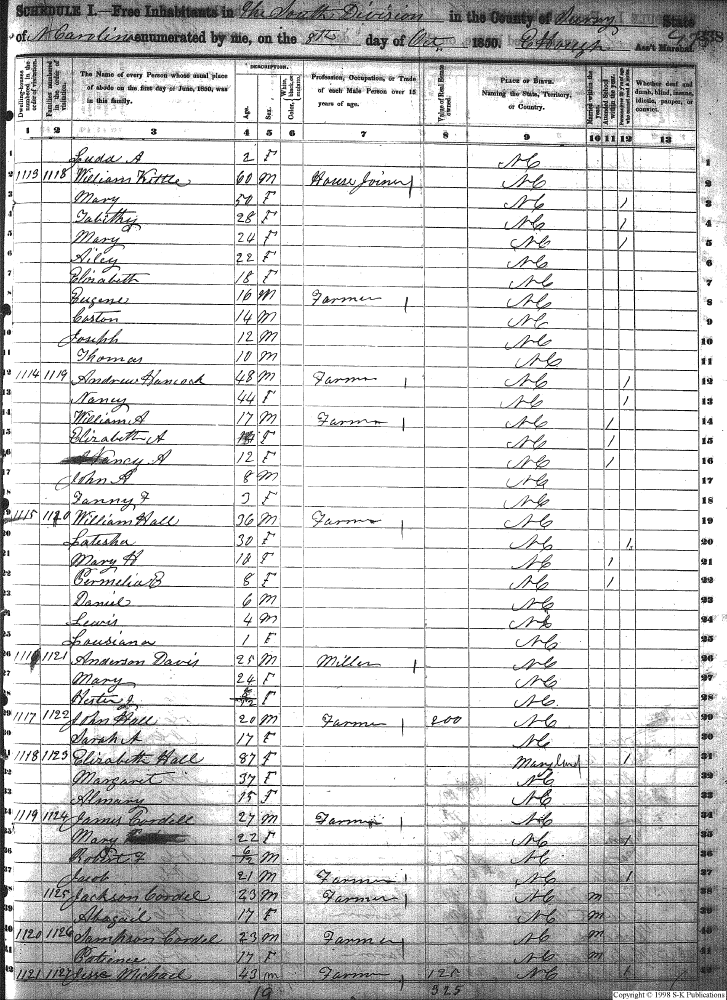 SCHEDULE I.—Free Inhabitants in The South Division in the County of Surry State
of N Carolina enumerated by me, on the 8th day of Oct. 1850. Ass't Marshal.
DESCRIPTION.
Dwelling-houses numbered in the order of visitation.
Families numbered in the order of visitation.
The Name of every Person whose usual place of abode on the first day of June, 1850, was in this family.
Age.
Sex.
Color, White, black, or mulatto.
Profession, Occupation, or Trade of each Male Person over 15 years of age.
Value of Real Estate owned.
PLACE OF BIRTH. Naming the State, Territory, or Country.
Married within the year.
Attended School within the year.
Whether deaf and dumb, blind, insane, idiotic, pauper, or convict.
1 2 3 4 5 6 7 8 9 10 11 12 13
1 2 F NC 1
2 1113 1118 William Kittle 60 M House Joiner NC 2
3 Mary 50 F NC 1 3
4 Tabitha 28 F NC 1 4
5 Mary 24 F NC 1 5
6 Ailey 22 F NC 6
7 Elizabeth 18 F NC 7
8 Eugene 16 M Farmer NC 8
9 Caston 14 M NC 9
10 Joseph 12 M NC 10
11 Thomas 10 M NC 11
12 1114 1119 Andrew Hancock 48 M Farmer NC 1 12
13 Nancy 44 F NC 1 13
14 William A 17 M Farmer NC 1 14
15 Elizabeth A F NC 1 15
16 Nancy A 12 F NC 1 16
17 John A 8 M NC 17
18 Fanny F 3 F NC 18
19 1115 1120 William Hall 36 M Farmer NC 19
20 Latisha 30 F NC 1 20
21 Mary H 10 F NC 1 21
22 Permelia B 8 F NC 1 22
23 Daniel 6 M NC 23
24 Lewis 4 M NC 24
25 Lousiana 1 F NC 25
26 1116 1121 Anderson Davis 25 M Miller NC 26
27 Mary 24 F NC 27
28 Hester J F NC 28
29 1117 1122 John Hall 20 M Farmer 200 NC 29
30 Sarah A 17 F NC 30
31 1118 1123 Elizabeth Hall 87 F Maryland 1 31
32 Margaret 37 F NC 32
33 Almary 15 F NC 33
34 1119 1124 James Cordell 27 M Farmer NC 34
35 Mary 22 F NC 1 35
36 Robert F 6/12 M NC 36
37 Jacob 21 M Farmer NC 1 37
38 1125 Jackson Cordel 23 M Farmer NC m 38
39 Abagail 17 F NC m 39
40 1120 1126 Sampson Cordel 23 M Farmer NC m 40
41 17 F NC m 41
42 1121 1127 Jesse Michael 43 m Farmer 125 NC 1 42
19 325
Copyright © 1998 S-K Publications